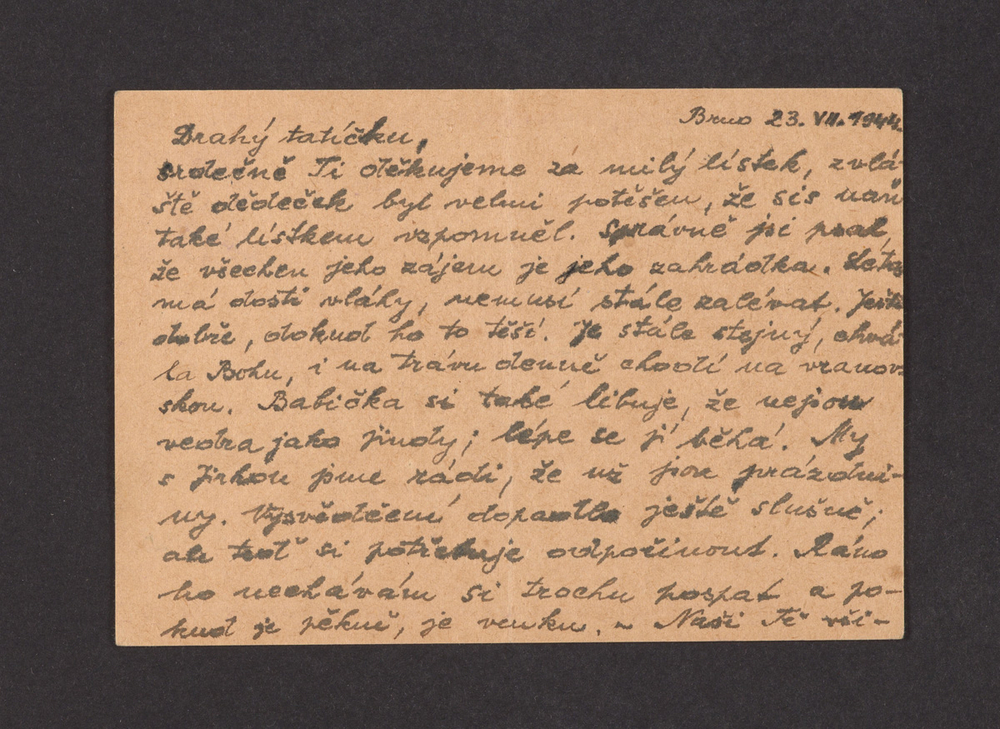 Brno 23. VII. 1944.
Drahý tatíčku,
srdečně Ti děkujeme za milý lístek, zvlá-
ště dědeček byl velmi potěšen, že sis naň
také lístkem vzpomněl. Správně jsi psal,
že všechen jeho zájem je jeho zahrádka. Letos
má dosti vláhy, nemusí stále zalévat. Ještě
dobře, dokud ho to těší. Je stále stejný, chvá-
la Bohu, i na trávu denně chodí na vranov-
skou. Babička si také libuje, že nejsou
vedra jako jindy; lépe se jí běhá. My
s Jirkou jsme rádi, že už jsou prázdni-
ny. Vysvědčení dopadlo ještě slušně;
ale teď si potřebuje odpočinout. Ráno
ho nechávám si trochu pospat a po-
kud je pěkně, je venku. – Naši Tě vši-